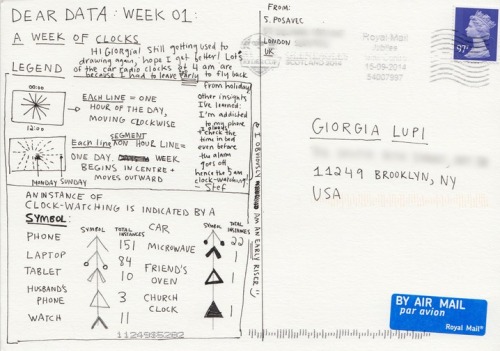 DEAR DATA: WEEK 01:
A WEEK OF CLOCKS
Hi Giorgia! Still getting used to
drawing again, hope I get better! Lots
of the car radio clocks at 4 am are
because I had to leave early to fly back
from holiday!
Other insights
I've learned:
I'm addicted
to my phone
I always
check the
time in bed
even before
the alarm
goes off
hence the 5am
clock-watching.
- Stef
LEGEND
00:00
12:00
EACH LINE = ONE
HOUR OF THE DAY,
MOVING CLOCKWISE
SEGMENT
Each line ON HOUR LINE =
ONE DAY. WEEK
BEGINS IN CENTRE +
MOVES OUTWARD
MONDAY SUNDAY
AN INSTANCE OF
CLOCK-WATCHING IS INDICATED BY A
SYMBOL:
SYMBOL TOTAL INSTANCES
PHONE 151
LAPTOP 84
TABLET 10
HUSBAND'S PHONE 3
WATCH 11
SYMBOL TOTAL INSTANCES
CAR 22
MICROWAVE 1
FRIEND'S OVEN 1
CHURCH CLOCK 1
I OBVIOUSLY AM AN EARLY RISER (:
11249$5282
FROM:
S. POSAVEC
LONDON
UK
Royal Mail
15-09-2014
54007997
97p
GIORGIA LUPI
11249 BROOKLYN, NY
USA
BY AIR MAIL
par avion
Royal Mail